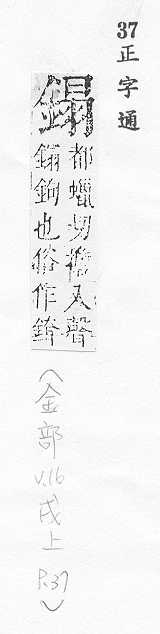 37正字通
鎉
都蠟切擔入聲
鎉鉤也俗作
（金部 V.16 戌上 P.37）